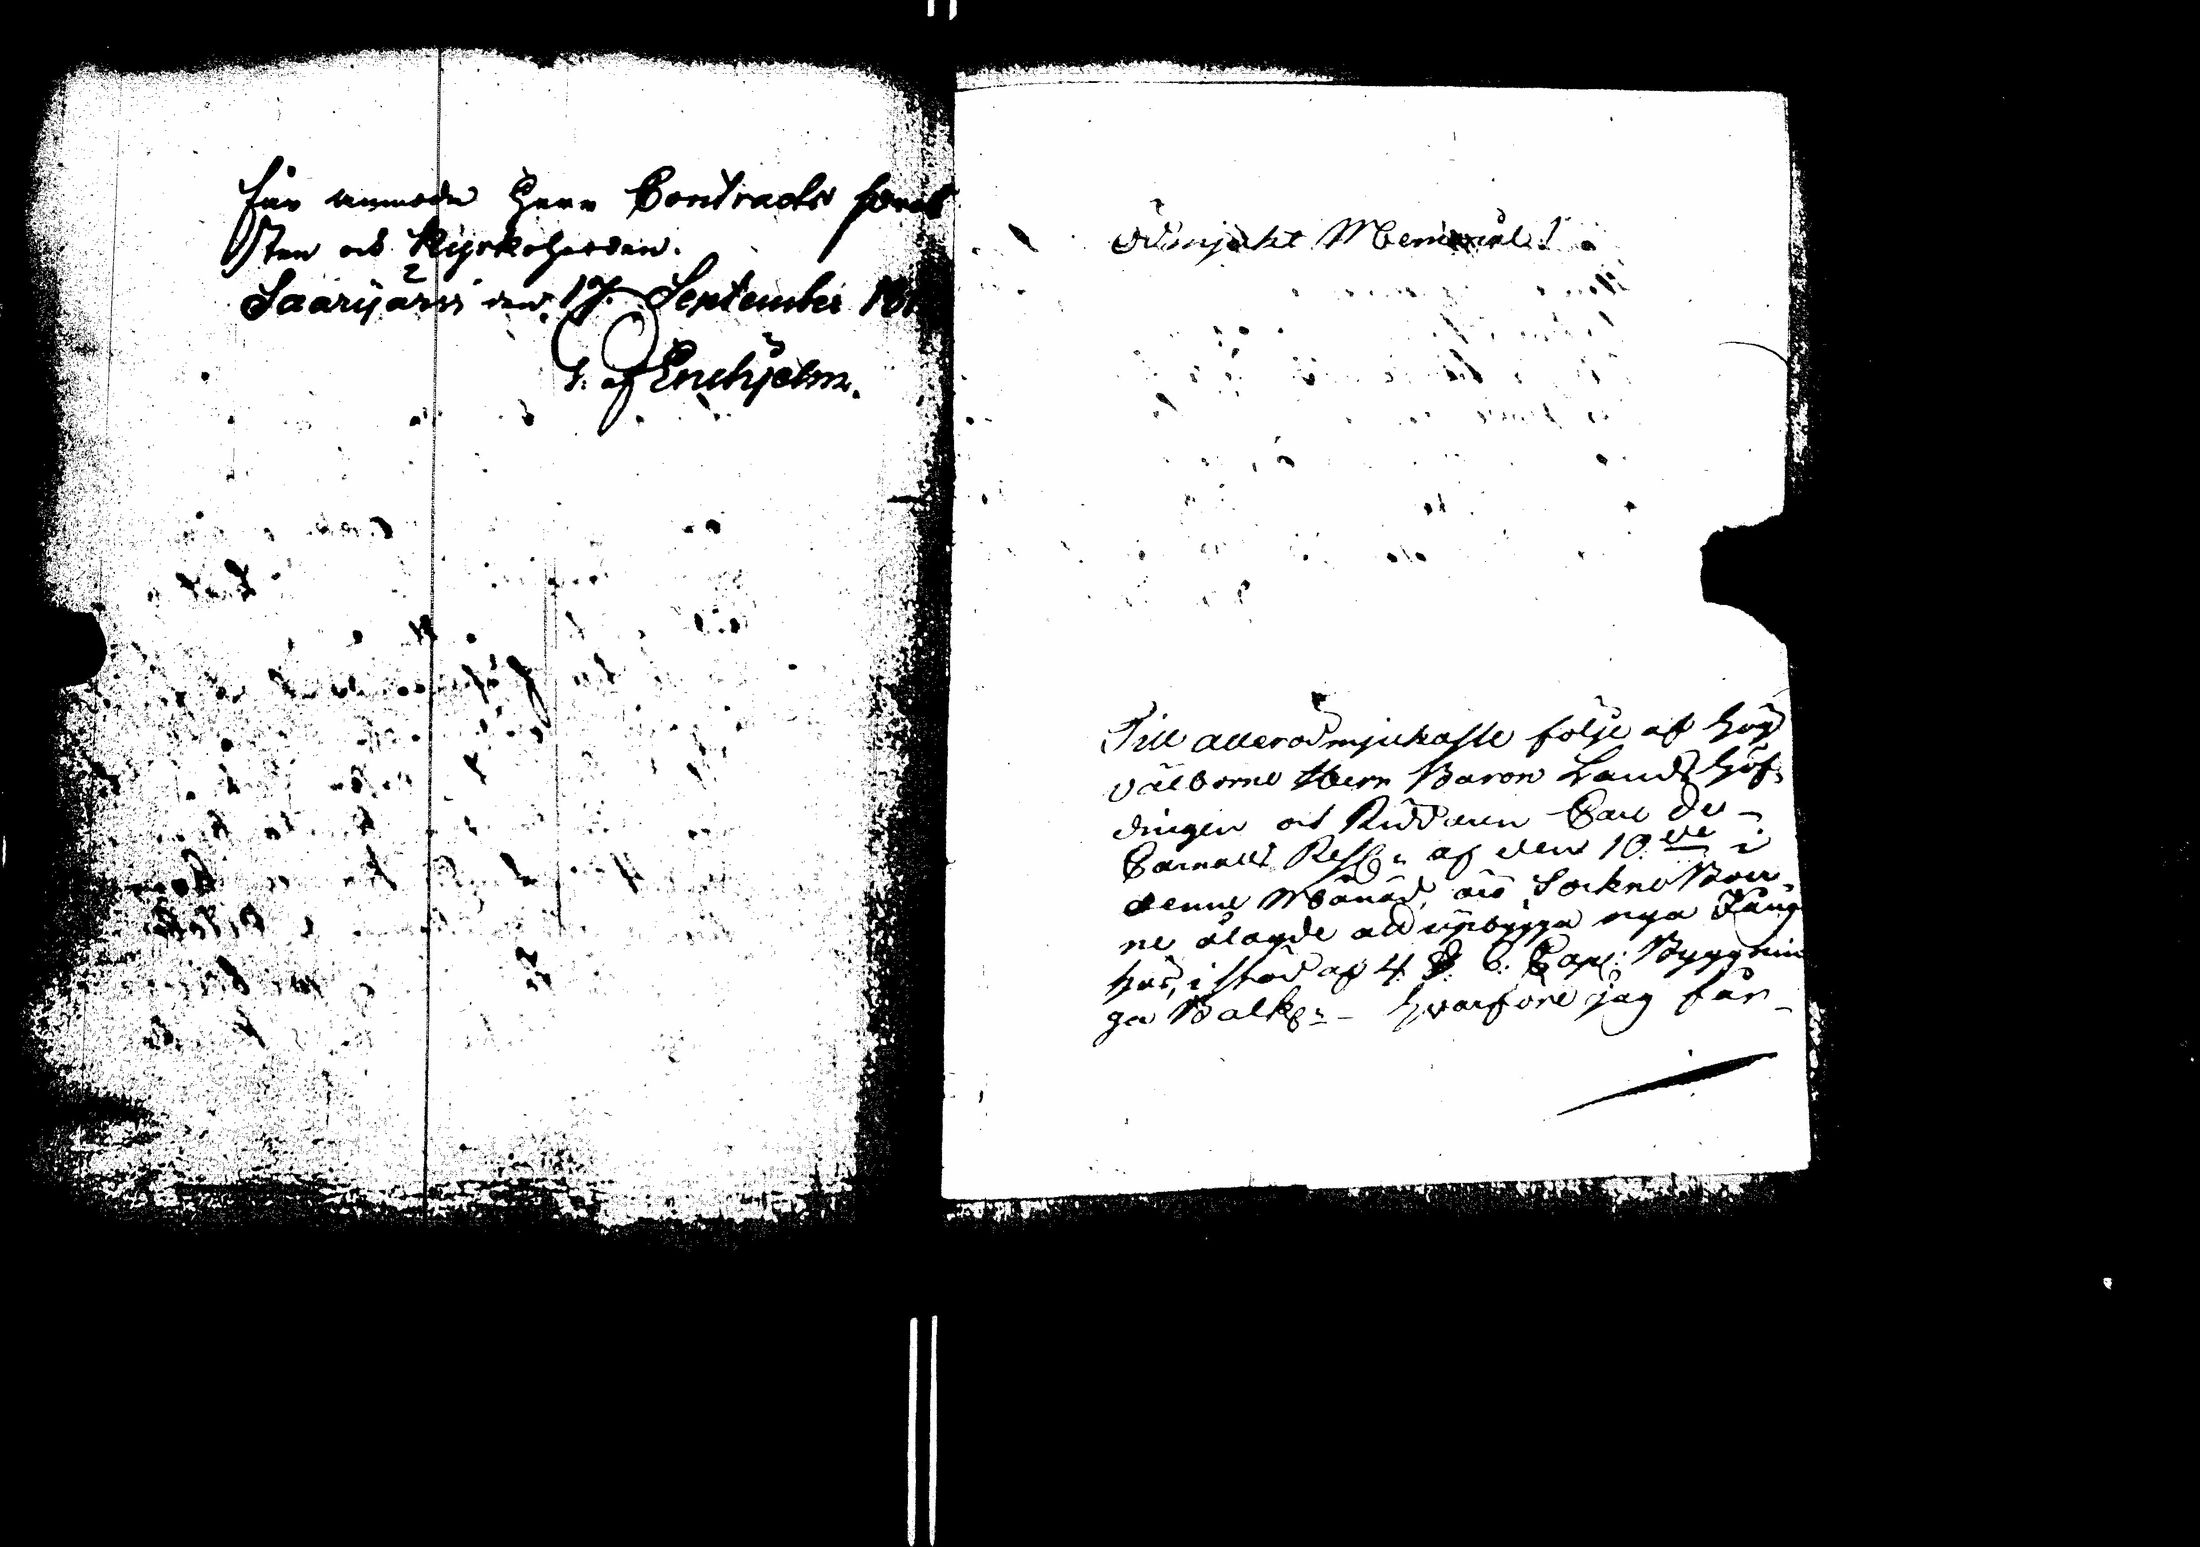 får anmoda Herr Contracts Prob
sten och Kyrkoherden.
Saarijärvi den 17. September 181
G. af Enehjelm.
Ödmjukt Memorial!
Till allerödmjukaste följe af Hög
välborne Herr Baron Landshöf-
dingen och Riddaren Carl De-
Carnalls Resol: af den 10de i
denne Månad, äro Sockne Boer-
ne ålagde att upbygga nya Fång
hus, i stad af 4 Cap: Byggnin
ga Balk: - Hvarföre jag får-